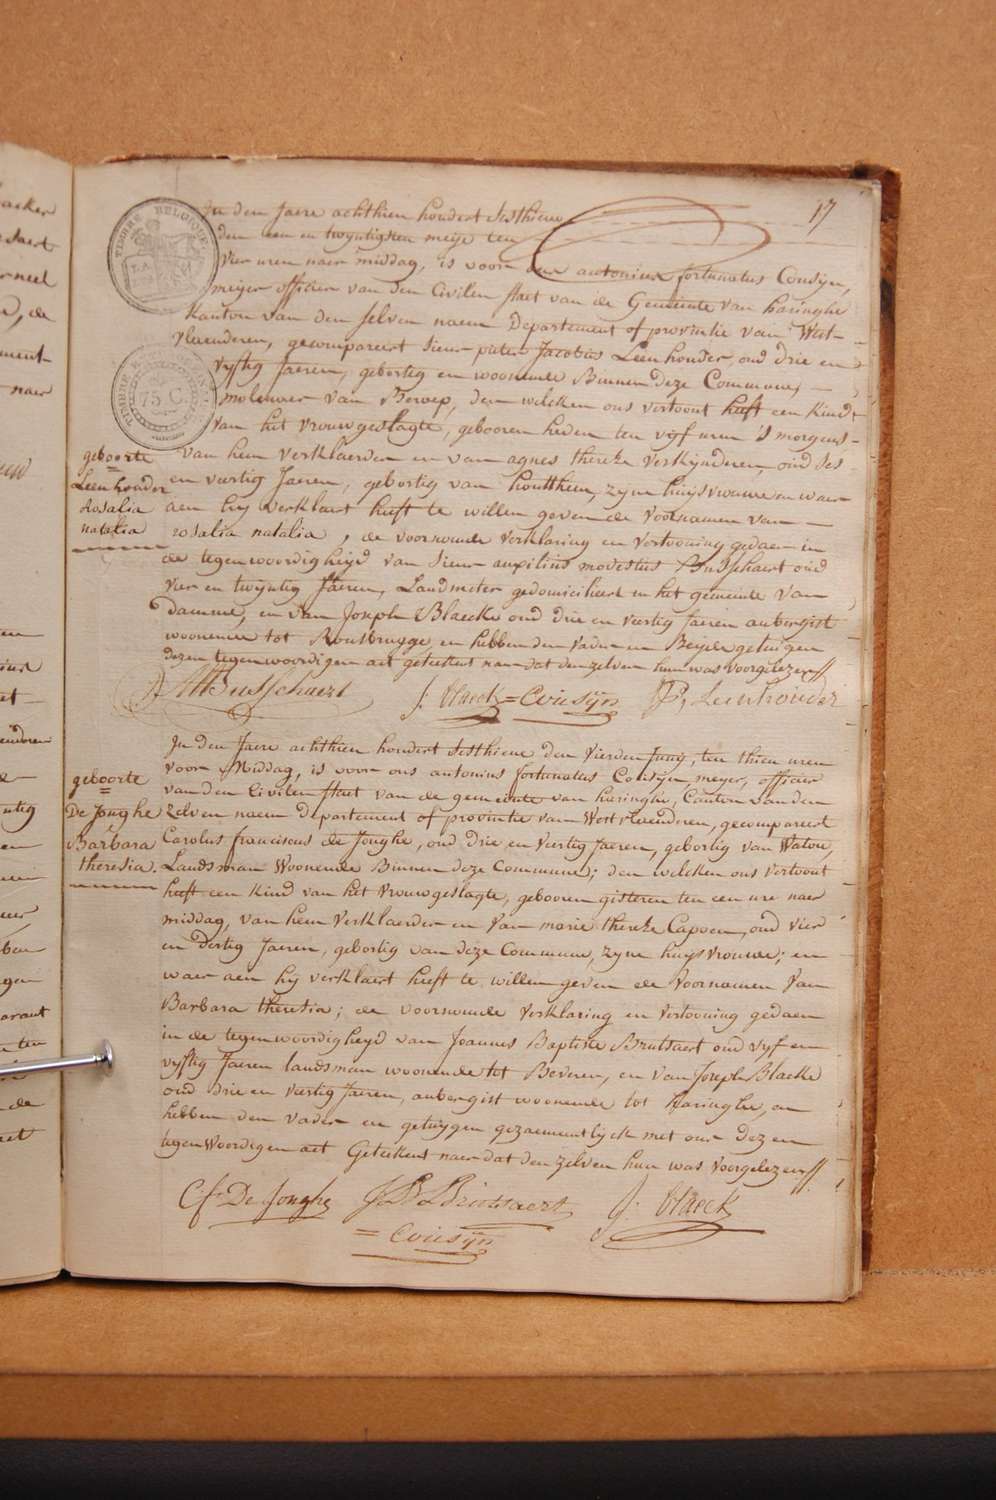 17
In den Jaere achthien hondert Sesthiene
den een en twyntigsten meije ten
vier uren naer middag, is voor ons antonius fortunatus Cousijn,
meijer officier van den Civilen staet van de Gemeente van haringhe
kanton van den selven naem Departement of provintie van West-
vlaenderen, gecompareert Sieur pieter Jacobus Leenhouder, oud drie en
vyftig Jaeren, gebortig en woonende Binnen deze Commune,
molenaer van Beroep, den welcken ons vertoont heeft een kind
van het vrouwgeslagte, gebooren heden ten vijf uren 's morgens
van hem verklaerder en van agnes thereze verkijnderen, oud ses
en viertig Jaeren, gebortig van houtthem, zyne huijsvrouwe en waer
aen hij verklaert heeft te willen geven de voornamen van
rosalia natalia, de voornoemde verklaring en vertooning gedaen in
de tegenwoordigheijd van Sieur auxilius modestus Busschaert oud
vier en twijntig Jaeren, Landmeter gedomicilieert in het gemeente van
damme, en van Joseph Blaecke oud drie en viertig Jaeren aubergist
woonende tot Rousbrugge en hebben den vader en Beijde getuigen
dezen tegenwoordigen act geteekent naer dat den zelven hun was voorgelezen //
geboorte
=
Leenhouder
Rosalia
natalia
AMBusschaert
J. Blaeck = Cousijn
P J Leenhouder
In den Jaere achthien hondert Sesthiene den vierden Junij, ten thien uren
voor Middag, is voor ons antonius fortunatus Cousijn, meyer, officier
van den Civilen staet van de gemeente van haringhe, Canton van den
zelven naem Departement of provintie van Westvlaenderen, gecompareert
Carolus franciscus de Jonghe, oud drie en viertig Jaeren, gebortig van Watou,
Landsman Woonende Binnen deze Commune; den welcken ons vertoont
heeft een kind van het vrouwgeslagte, gebooren gisteren ten een ure naer
middag, van hem verklaerder en van marie thereze Capoen, oud vier
en dertig Jaeren, gebortig van deze Commune, zyne huijsvrouwe; en
waer aen hij verklaert heeft te willen geven de voornamen van
Barbara theresia; de voornoemde verklaring en vertooning gedaen
in de tegenwoordigheyd van Joannes Baptiste Brutsaert oud vyf en
vyftig Jaeren landsman woonende tot Beveren, en van Joseph Blaecke
oud drie en viertig Jaeren, aubergist woonende tot haringhe, en
hebben den vader en getuygen gezaementlijck met ons dezen
tegenwoordigen act Geteekent naer dat den zelven hun was voorgelezen //
geboorte
=
De Jonghe
Barbara
theresia.
Cf De Jonghe
J B Brutsaert
J. Blaeck
= Cousijn
TIMBRE BELGIQUE
75 C.